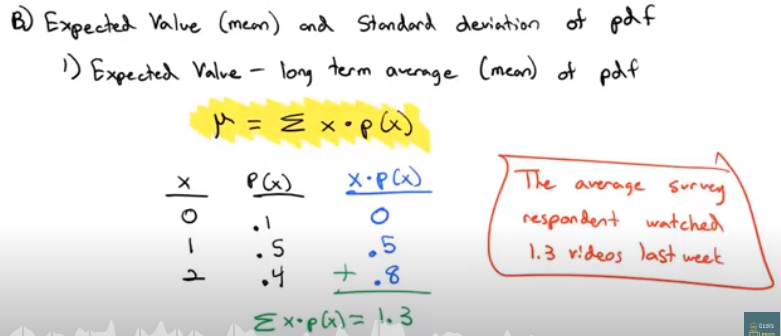 B) Expected Value (mean) and Standard deviation of pdf
1) Expected Value – long term average (mean) of pdf
μ = Σ x · p(x)
x P(x) x·P(x)
0 .1 0
1 .5 .5
2 .4 + .8
Σ x·p(x) = 1.3
The average survey
respondent watched
1.3 videos last week